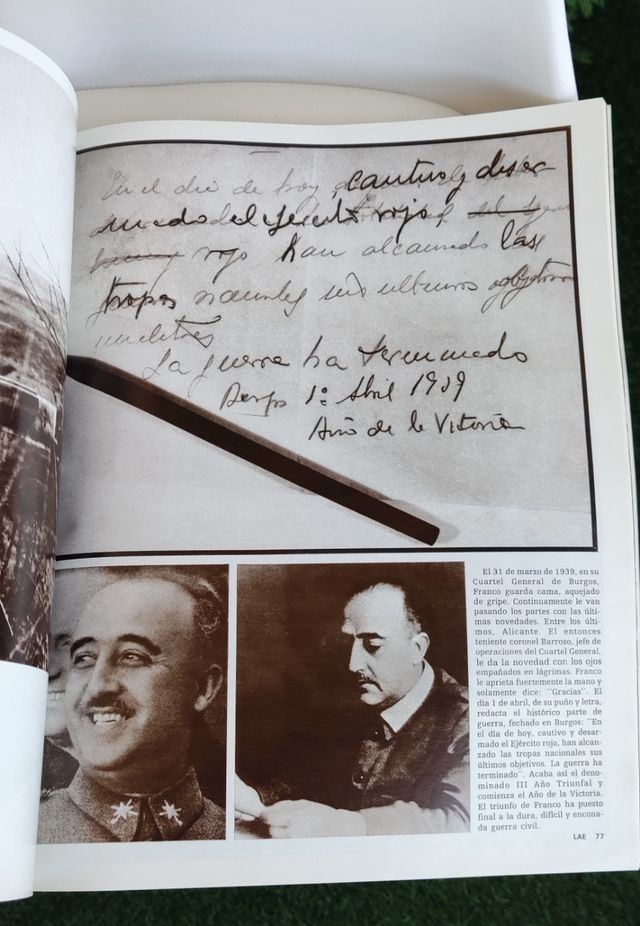 En el dia de hoy, cautivo y desar
medo el Ejercito rojo,
rojo han alcanzado las
tropas nacionales sus ultimos objetivos
militares
La guerra ha terminado
Burgos 1º Abril 1939
Año de la Victoria
El 31 de marzo de 1939, en su
Cuartel General de Burgos,
Franco guarda cama, aquejado
de gripe. Continuamente le van
pasando los partes con las últi-
mas novedades. Entre los últi-
mos, Alicante. El entonces
teniente coronel Barroso, jefe de
operaciones del Cuartel General,
le da la novedad con los ojos
empañados en lágrimas. Franco
le aprieta fuertemente la mano y
solamente dice: "Gracias". El
día 1 de abril, de su puño y letra,
redacta el histórico parte de
guerra, fechado en Burgos: "En
el día de hoy, cautivo y desar-
mado el Ejército rojo, han alcan-
zado las tropas nacionales sus
últimos objetivos. La guerra ha
terminado". Acaba así el deno-
minado III Año Triunfal y
comienza el Año de la Victoria.
El triunfo de Franco ha puesto
final a la dura, difícil y encona-
da guerra civil.
LAE 77